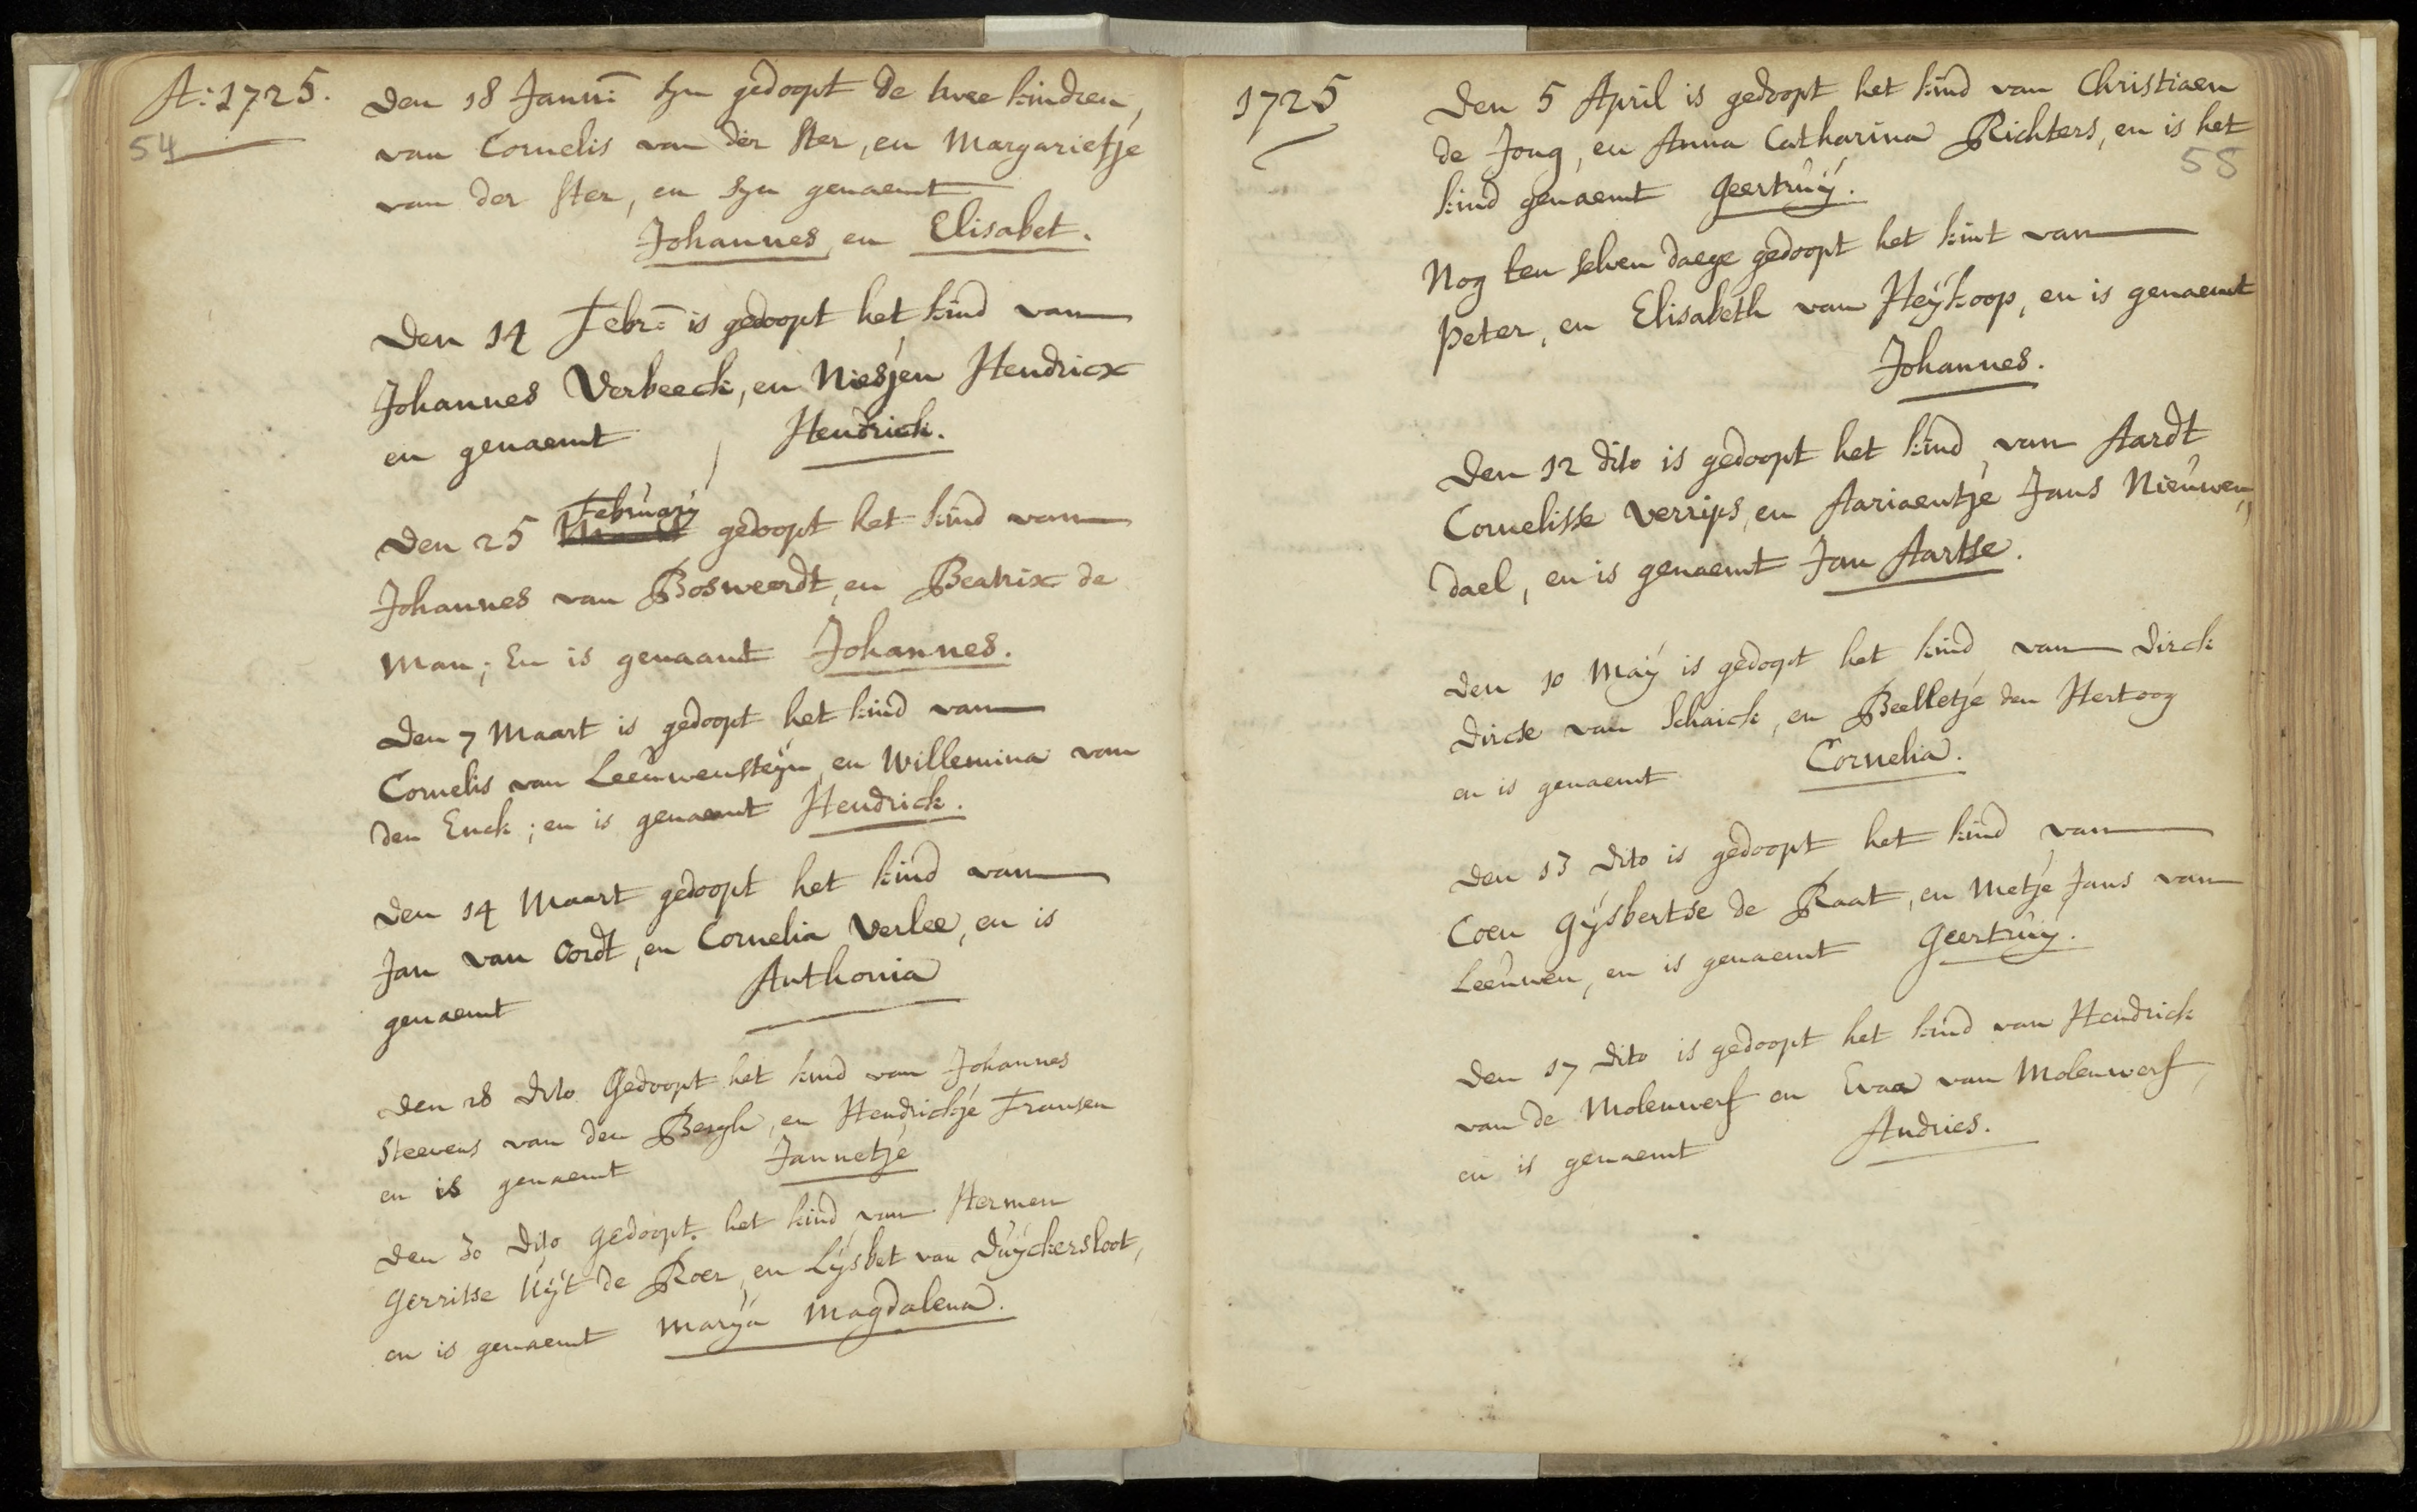 A: 1725.
54
Den 18 Janu: syn gedoopt de twee kindren,
van Cornelis van der Ster, en Margarietje
van der Ster, en syn genaemt
Johannes, en Elisabet.
Den 14 Febr: is gedoopt het kind van
Johannes Verbeeck, en Niesjen Hendricx
en genaemt Hendrick.
February
Den 25 Maart gedoopt het kind van
Johannes van Bosweerdt, en Beatrix de
Man; En is genaamt Johannes.
Den 7 Maart is gedoopt het kind van
Cornelis van Leeuwensteyn, en Willemina van
den Enck; en is genaemt Hendrick.
Den 14 Maart gedoopt het kind van
Jan van Oordt, en Cornelia Verlee, en is
genaemt Anthonia
Den 28 dito Gedoopt het kind van Johannes
Steevens van den Bergh, en Hendrickje Fransen
en is genaemt Jannetje
Den 30 dito gedoopt het kind van Hermen
Gerritse Uyt de Roer, en Lysbet van Duyckersloot,
en is genaemt Marya Magdalena.
1725
58
Den 5 April is gedoopt het kind van Christiaen
de Jong, en Anna Catharina Richters, en is het
kind genaemt Geertruy.
Nog ten selven daege gedoopt het kint van
Peter, en Elisabeth van Heykoop, en is genaemt
Johannes.
Den 12 dito is gedoopt het kind van Aardt
Cornelisse Verrips, en Aariaentje Jans Nieuwen,,
dael, en is genaemt Jan Aartse.
Den 10 May is gedoopt het kind van Dirck
Dirckse van Schaick, en Beelletje den Hertoog
en is genaemt Cornelia.
Den 13 dito is gedoopt het kind van
Coen Gysbertse de Raat, en Metje Jans van
Leeuwen, en is genaemt Geertruy.
Den 17 dito is gedoopt het kind van Hendrick
van de Molenwerf en Evaa van Molenwerf,
en is genaemt Andries.